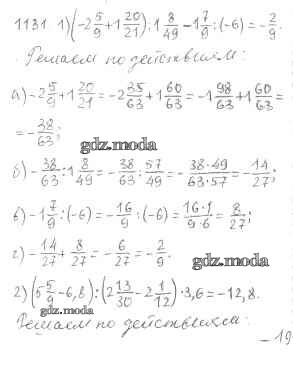 1131. 1) (-2 5/9 + 1 20/21) : 1 8/49 - 1 7/9 : (-6) = -2/9.
Решаем по действиям:
а) -2 5/9 + 1 20/21 = -2 35/63 + 1 60/63 = -1 98/63 + 1 60/63 =
= -38/63;
gdz.moda
б) -38/63 : 1 8/49 = -38/63 : 57/49 = -38·49/63·57 = -14/27;
в) -1 7/9 : (-6) = -16/9 : (-6) = 16·1/9·6 = 8/27;
г) -14/27 + 8/27 = -6/27 = -2/9.
gdz.moda
2) (5 5/9 - 6,8) : (2 13/30 - 2 1/12) · 3,6 = -12,8.
Решаем по действиям:
gdz.moda
- 19